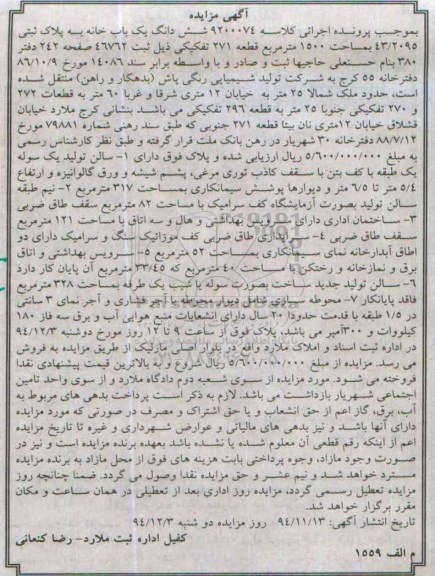 آگهی مزایده
بموجب پرونده اجرائی کلاسه ۹۲۰۰۰۷۴ شش دانگ یک باب خانه به پلاک ثبتی
۴۳/۲۰۹۵ بمساحت ۱۵۰۰ مترمربع قطعه ۲۷۱ تفکیکی ذیل ثبت ۴۶۷۶۲ صفحه ۲۴۲ دفتر
۳۸۰ بنام حسنعلی حاجیها ثبت و صادر و با واسطه برابر سند ۱۴۰۸۶ مورخ ۸۶/۱۰/۹
دفترخانه ۵۵ کرج به شرکت تولید شیمیایی رنگی پاش (بدهکار و راهن) منتقل شده
است، حدود ملک شمالا ۲۵ متر به خیابان ۱۲ متری شرقا و غربا ۶۰ متر به قطعات ۲۷۲
و ۲۷۰ تفکیکی جنوبا ۲۵ متر به قطعه ۲۹۶ تفکیکی می باشد بنشانی کرج ملارد خیابان
قشلاق خیابان ۱۲متری نان بیتا قطعه ۲۷۱ جنوبی که طبق سند رهنی شماره ۷۹۸۸۱ مورخ
۸۸/۷/۱۲ دفترخانه ۳۰ شهریار در رهن بانک ملت قرار گرفته و طبق نظر کارشناس رسمی
به مبلغ ۵/۶۰۰/۰۰۰/۰۰۰ ریال ارزیابی شده و پلاک فوق دارای ۱- سالن تولید یک سوله
یک طبقه با کف بتن با سقف کاذب توری مرغی، پشم شیشه و ورق گالوانیزه و ارتفاع
۵/۴ متر تا ۶/۵ متر و دیوارها پوشش سیمانکاری بمساحت ۳۱۷ مترمربع ۲- نیم طبقه
سالن تولید بصورت آزمایشگاه کف سرامیک با مساحت ۸۲ مترمربع سقف طاق ضربی
۳- ساختمان اداری دارای سرویس بهداشتی و هال و سه اتاق با مساحت ۱۲۱ مترمربع
سقف طاق ضربی ۴- سرایداری طاق ضربی کف موزائیک سنگ و سرامیک دارای دو
اطاق آبدارخانه نمای سیمانکاری بمساحت ۵۲ مترمربع ۵- سرویس بهداشتی و اتاق
برق و نمازخانه و رختکن با مساحت ۴۰ مترمربع که ۳۳/۴۵ مترمربع آن پایان کار دارد
۶- سالن تولید جدید ساخت بصورت سوله با شیب یک طرفه بمساحت ۳۲۸ مترمربع
فاقد پایانکار ۷- محوطه سازی شامل دیوار محوطه با آجر فشاری و آجر نمای ۳ سانتی
در ۱/۵ طبقه با قدمت حدودا ۲۰ سال دارای انشعابات منبع هوایی آب و برق سه فاز ۱۸۰
کیلووات و ۳۰۰آمپر می باشد، پلاک فوق از ساعت ۹ تا ۱۲ روز مورخ دوشنبه ۹۴/۱۲/۳
در اداره ثبت اسناد و املاک ملارد واقع در بلوار اصلی مارلیک از طریق مزایده به فروش
می رسد. مزایده از مبلغ ۵/۶۰۰/۰۰۰/۰۰۰ ریال شروع و به بالاترین قیمت پیشنهادی نقدا
فروخته می شود. مورد مزایده از سوی شعبه دوم دادگاه ملارد و از سوی واحد تامین
اجتماعی شهریار بازداشت می باشد. لازم به ذکر است پرداخت بدهی های مربوط به
آب، برق، گاز اعم از حق انشعاب و یا حق اشتراک و مصرف در صورتی که مورد مزایده
دارای آنها باشد و نیز بدهی های مالیاتی و عوارض شهرداری و غیره تا تاریخ مزایده
اعم از اینکه رقم قطعی آن معلوم شده یا نشده باشد بعهده برنده مزایده است و نیز در
صورت وجود مازاد، وجوه پرداختی بابت هزینه های فوق از محل مازاد به برنده مزایده
مسترد خواهد شد و نیم عشر و حق مزایده نقدا وصول می گردد. ضمنا چنانچه روز
مزایده تعطیل رسمی گردد، مزایده روز اداری بعد از تعطیلی در همان ساعت و مکان
مقرر برگزار خواهد شد.
تاریخ انتشار آگهی: ۹۴/۱۱/۱۳ روز مزایده دو شنبه ۹۴/۱۲/۳
کفیل اداره ثبت ملارد- رضا کنعانی
م الف ۱۵۵۹